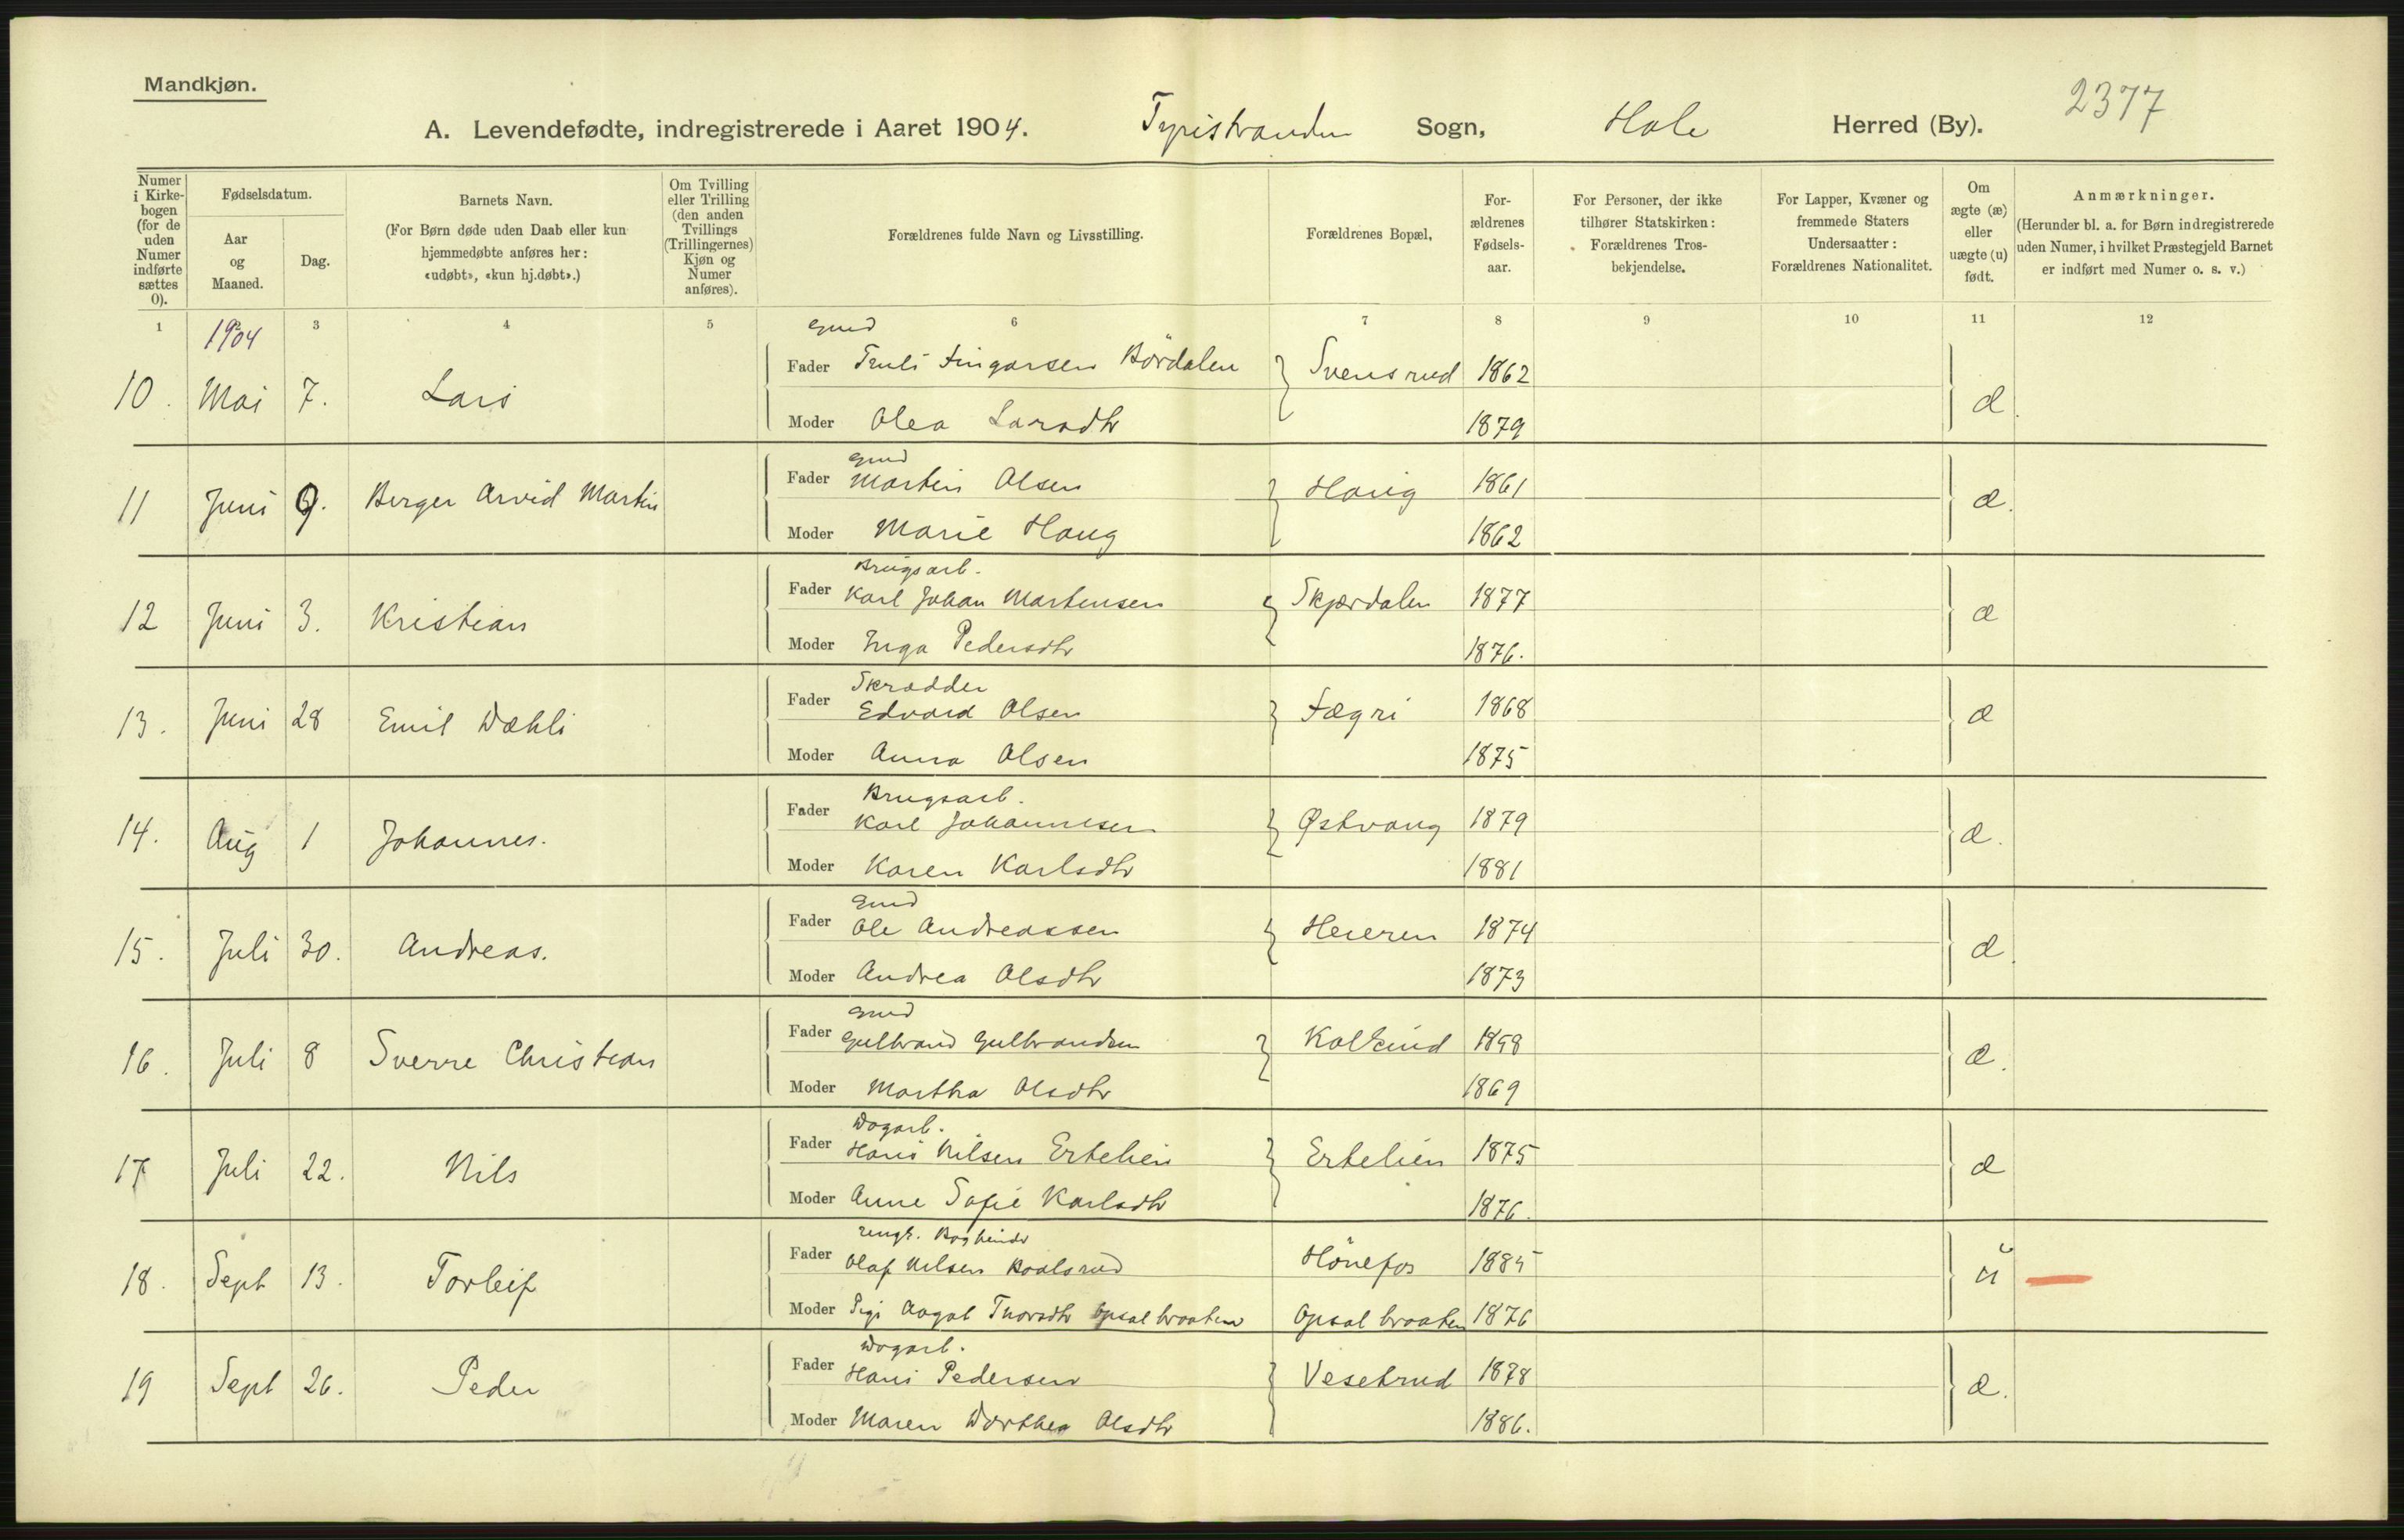 Mandkjøn.
2377
A. Levendefødte, indregistrerede i Aaret 1904. Tyristranden Sogn, Hole Herred (By).
Numer i Kirkebogen (for de uden Numer indførte sættes 0).
Fødselsdatum.
Aar og Maaned.
Dag.
Barnets Navn.
(For Børn døde uden Daab eller kun hjemmedøbte anføres her: «udøbt», «kun hj.døbt».)
Om Tvilling eller Trilling (den anden Tvillings (Trillingernes) Kjøn og Numer anføres).
Forældrenes fulde Navn og Livsstilling.
Forældrenes Bopæl,
Forældrenes Fødselsaar.
For Personer, der ikke tilhører Statskirken: Forældrenes Trosbekjendelse.
For Lapper, Kvæner og fremmede Staters Undersaatter: Forældrenes Nationalitet.
Om ægte (æ) eller uægte (u) født.
Anmærkninger.
(Herunder bl. a. for Børn indregistrerede uden Numer, i hvilket Præstegjeld Barnet er indført med Numer o. s. v.)
1 2 3 4 5 6 7 8 9 10 11 12
1904
Gmd
10. Mai 7. Lars Fader Truls Bördalen Svensrud 1862 æ.
Moder Olea Larsdtr 1879
Gmd
11 Juni 9. Berger Arvid Martin Fader Martin Olsen Haug 1861 æ.
Moder Marie Haug 1862
Brugsarb.
12 Juni 3. Kristian Fader Karl Johan Martensen Skjærdalen 1877 æ
Moder Inga Pedersdtr 1876.
Skrædder
13. Juni 28 Emil Dæhli Fader Edvard Olsen Fægri 1868 æ
Moder Anna Olsen 1875
Brugsarb.
14. Aug 1 Johannes. Fader Karl Johannesen Østvang 1879 æ.
Moder Karen Karlsdtr 1881
Gmd
15. Juli 30. Andreas. Fader Ole Andreassen Heieren 1874 æ.
Moder Andrea Olsdtr 1873
Gmd
16. Juli 8 Sverre Christian Fader Gulbrand Gulbrandsen 1858 æ.
Moder Martha Olsdtr 1869
Dagarb.
17 Juli 22. Nils Fader Hans Nilsen Ertelien Ertelien 1875 æ
Moder Anne Sofie Karlsdtr 1876.
ungk. Bogbinder
18. Sept 13. Torleif Fader Olaf Nilsen Hönefos 1885 u
Moder Aagot Thorsdtr Opsalbraaten Opsalbraaten 1876
Dagarb.
19 Sept 26. Peder Fader Hans Pedersen Vesetrud 1878 æ.
Moder Maren Dorthea Olsdtr 1886.